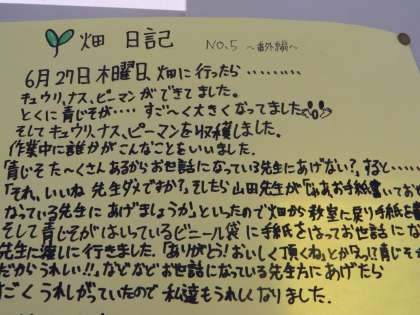 畑 日記 NO.5 〜番外編〜
6月27日木曜日、畑に行ったら………
キュウリ、ナス、ピーマンができてました。
とくに青じそが‥‥すご〜く大きくなってました
そしてキュウリ、ナス、ピーマンを収穫しました。
作業中に誰かがこんなことをいいました。
「青じそた〜くさんあるからお世話になっている先生にあげない?」すると……
「それ、いいね 先生ダメですか?」そしたら山田先生が「じゃあお手紙書いてお世
なっている先生に あげましょうか」といったので畑から教室に戻り手紙を書
そして青じそがはいっているビニール袋に手紙をはってお世話にな
先生に渡しに行きました。「ありがとう!おいしく頂くね」とか
だからうれしい!!」などなどお世話になっている先生方にあげたら
ごくうれしがっていたので私達もうれしくなりました。